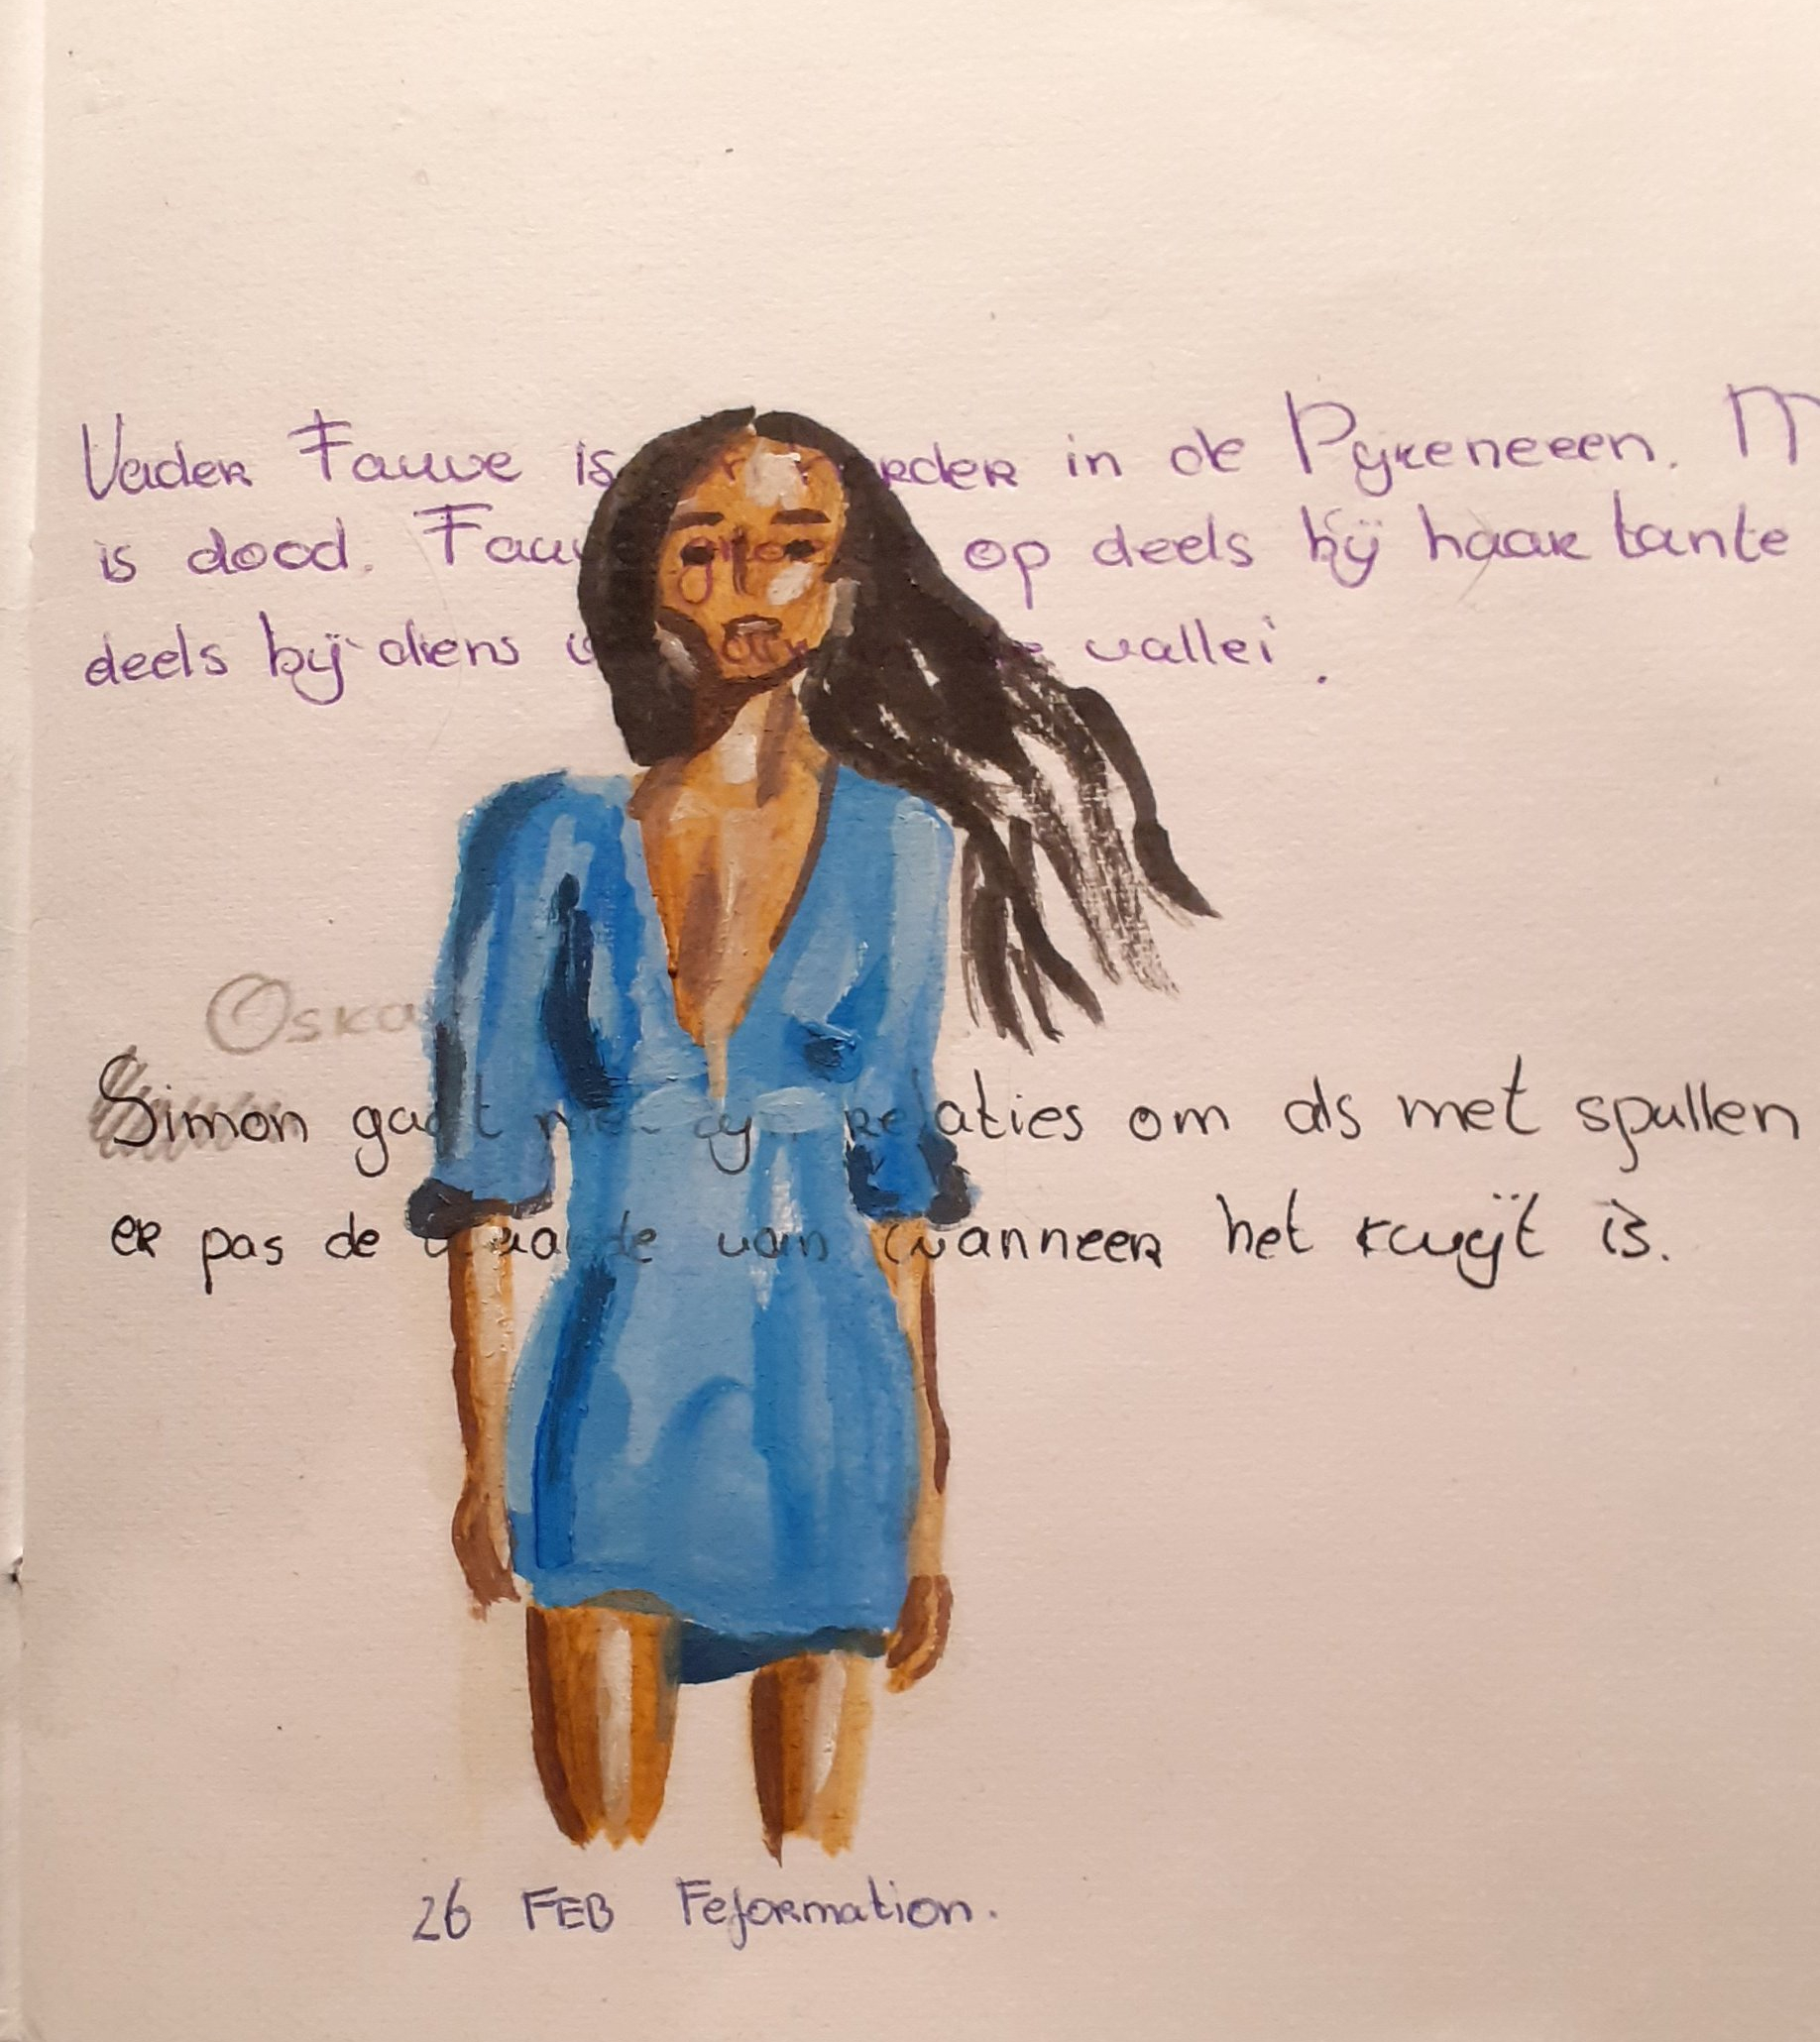 Vader Fauve is in de Pyreneeen. M
is dood. Fauve ging op deels bij haar tante
deels bij diens vallei.
Oska
Simon gaat met zijn relaties om als met spullen
er pas de waarde van wanneer het kwijt is.
26 FEB Feformation.